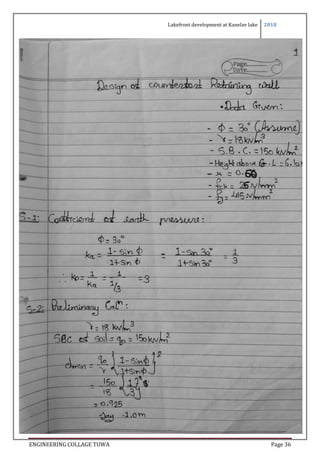 Lakefront development at Kanelav lake 2018
1
Page
Date
Design of counterfort Retaining wall
• Data Given:
- ϕ = 30° (Assume)
- γ = 18 kN/m³
- S.B.C. = 150 kN/m²
- Height above G.L = 6.10m
- μ = 0.60
- fck = 25 N/mm²
- fy = 415 N/mm²
S-1: Coefficient of earth pressure:
ϕ = 30°
ka = 1 - sin ϕ / 1 + sin ϕ = 1 - sin 30° / 1 + sin 30° = 1/3
∴ kp = 1/ka = 1/1/3 = 3
S-2: Preliminary Calⁿ:
γ = 18 kN/m³
SBC of soil = q₀ = 150 kN/m²
dmin = q₀/γ {1 - sinϕ / 1 + sinϕ}²
= 150/18 {1/3}²
= 0.925
Say 1.0m
ENGINEERING COLLAGE TUWA Page 36